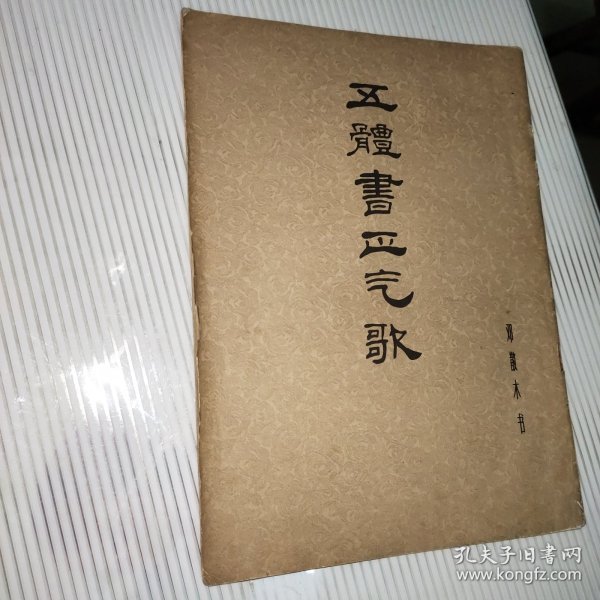 五體書正气歌
邓散木书
孔夫子旧書网
www.kongfz.com